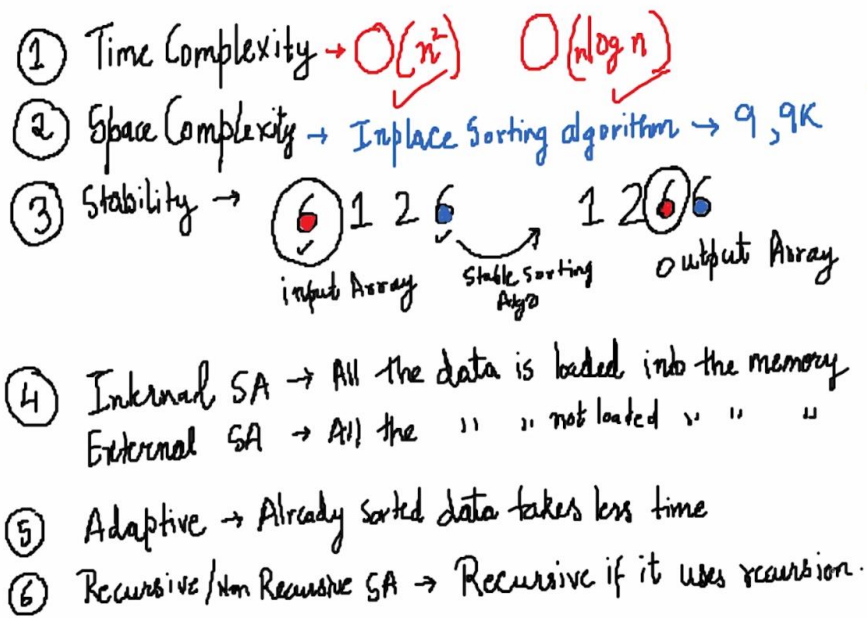 ① Time Complexity → O(n²) O(n log n)
② Space Complexity → Inplace Sorting algorithm → 9, 9K
③ Stability → 6 1 2 6 1 2 6 6
input Array Stable Sorting Algo output Array
④ Internal SA → All the data is loaded into the memory
External SA → All the " " not loaded " " "
⑤ Adaptive → Already sorted data takes less time
⑥ Recursive/Non Recursive SA → Recursive if it uses recursion.